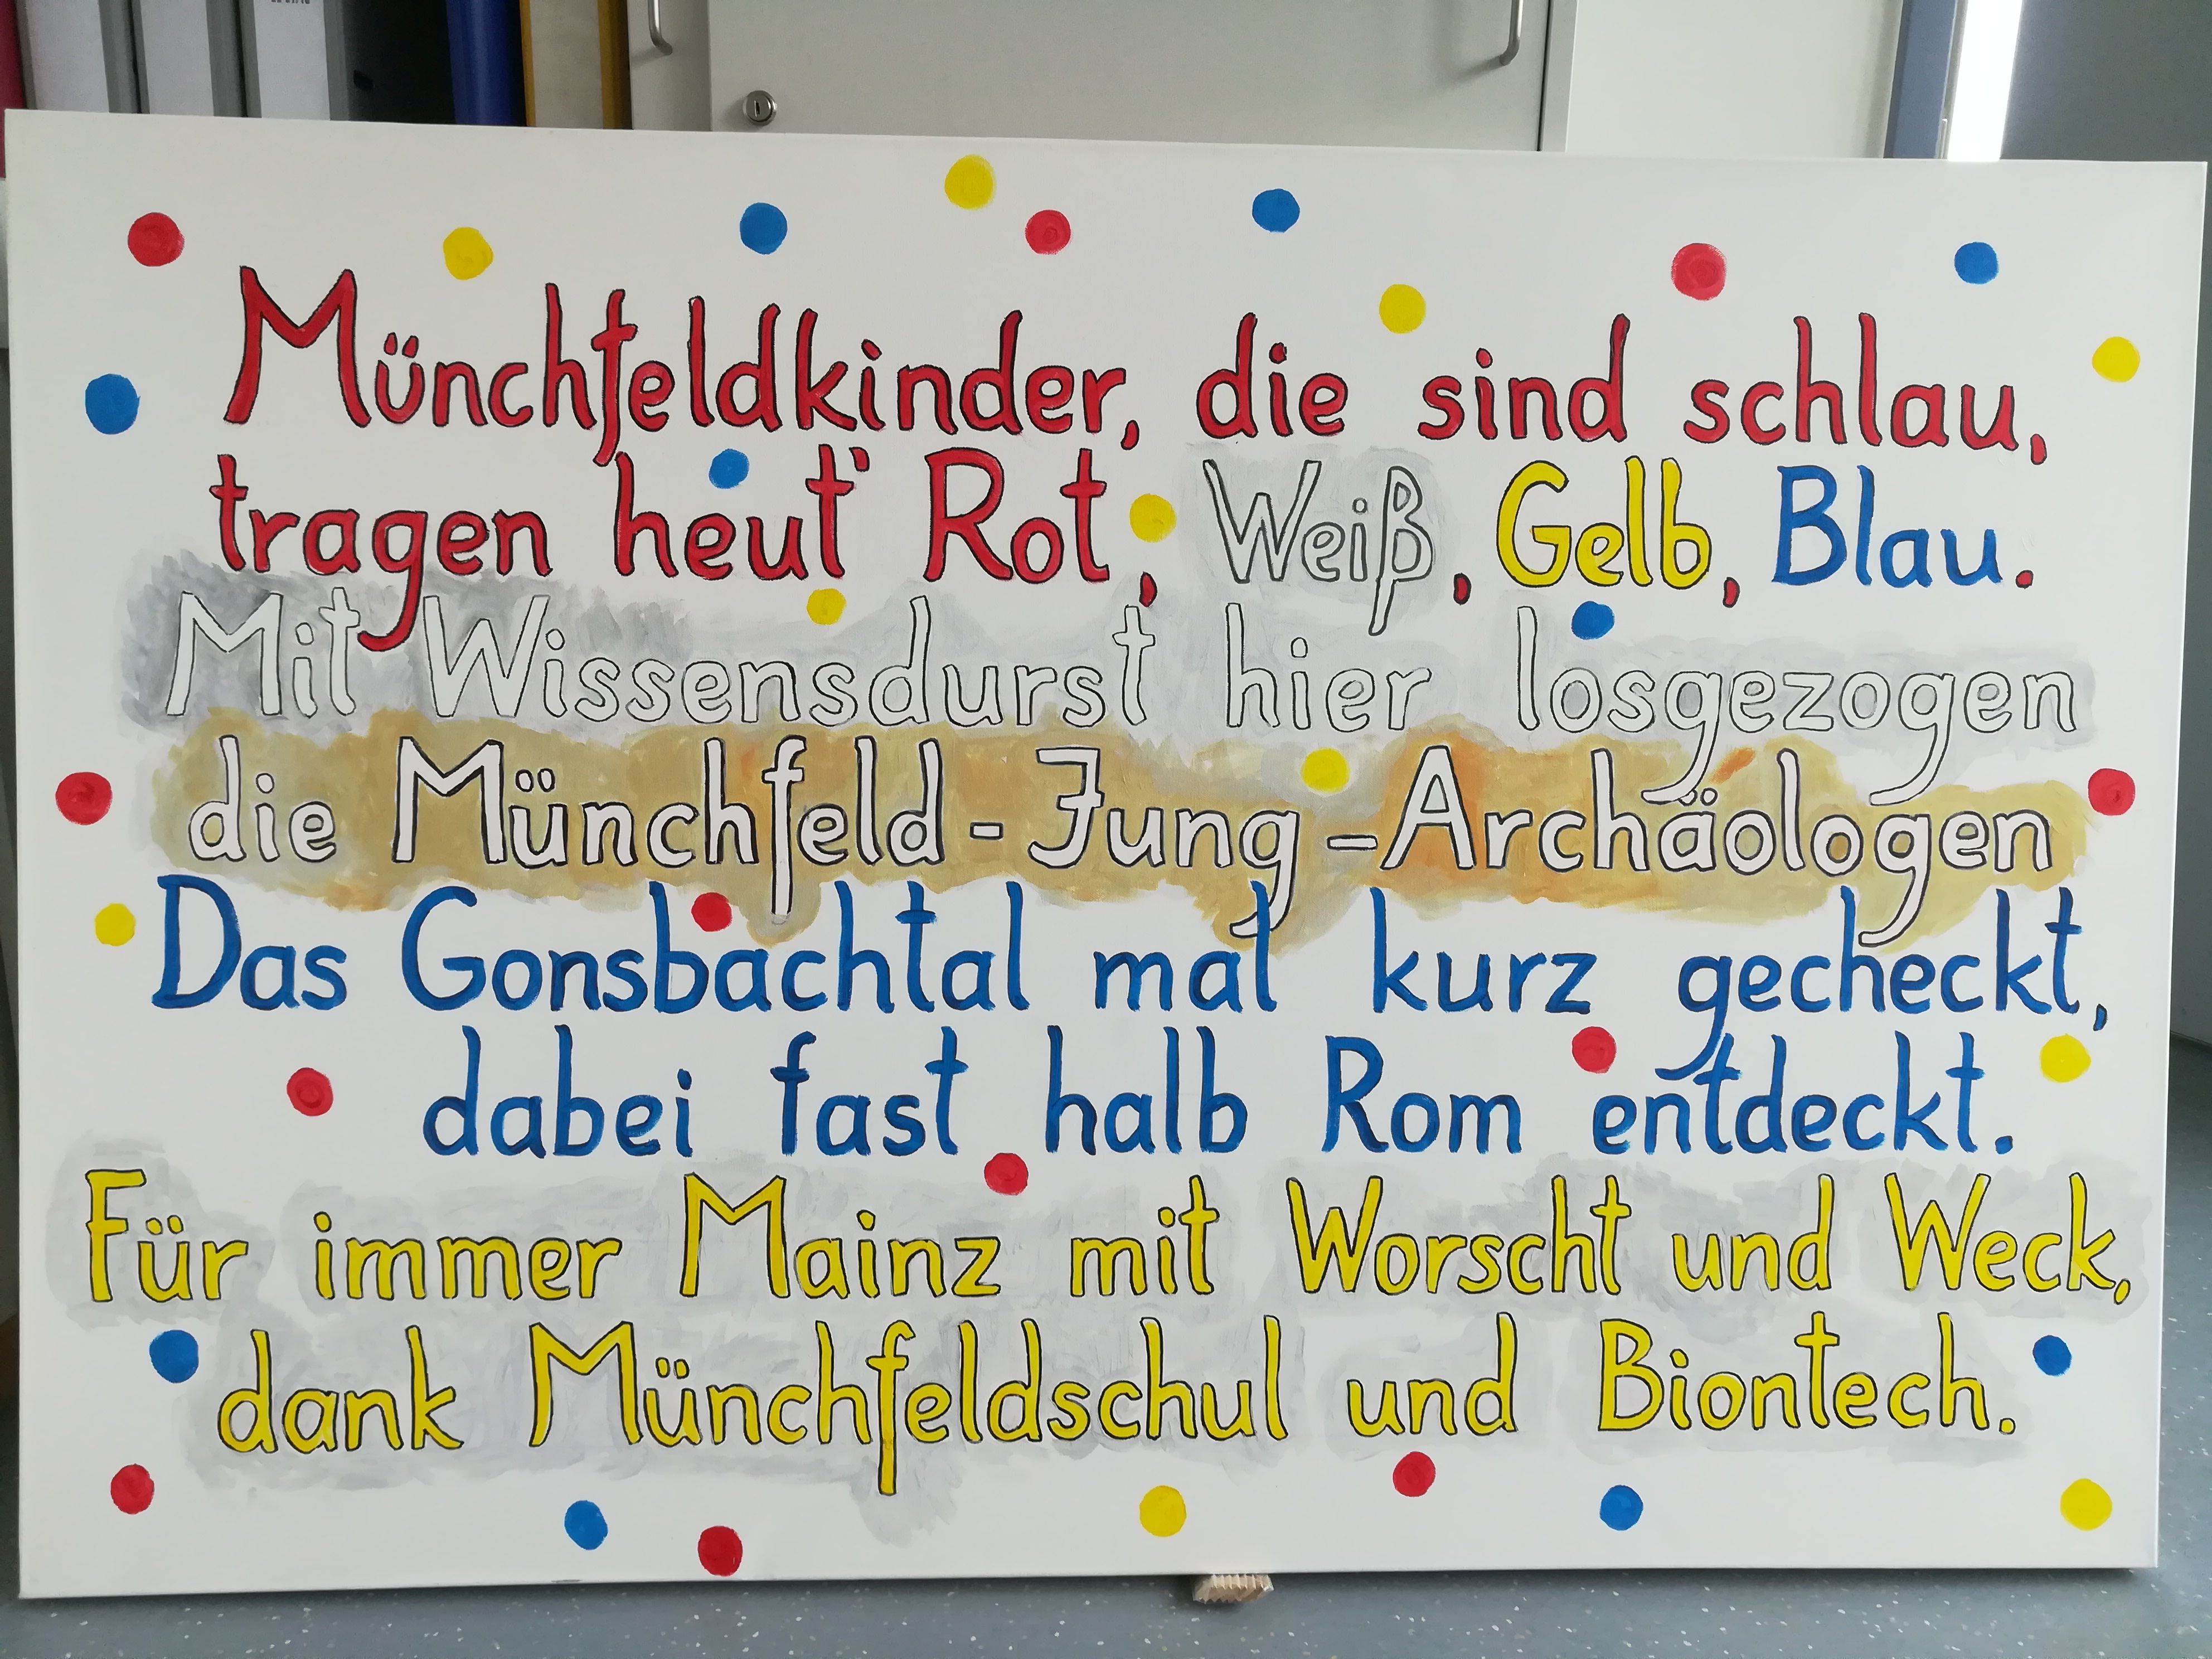 Münchfeldkinder, die sind schlau,
tragen heut' Rot, Weiß, Gelb, Blau.
Mit Wissensdurst hier losgezogen
die Münchfeld-Jung-Archäologen
Das Gonsbachtal mal kurz gecheckt,
dabei fast halb Rom entdeckt.
Für immer Mainz mit Worscht und Weck,
dank Münchfeldschul und Biontech.